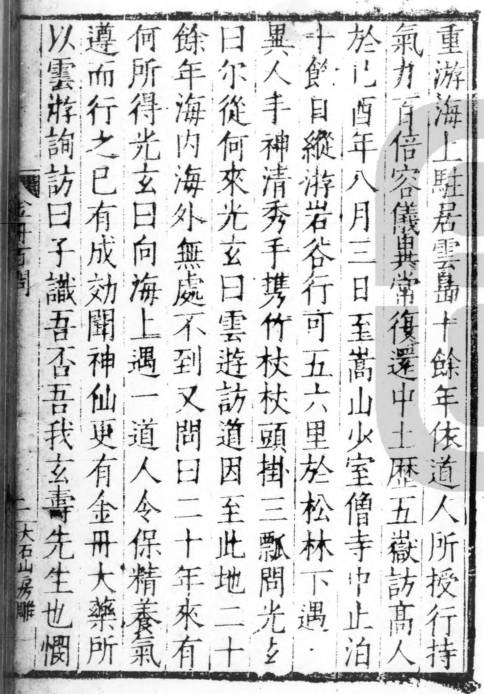 重游海上駐居雲島十餘年依道人所授行持
氣力百倍容儀異常復還中土歷五嶽訪高人
於己酉年八月三日至嵩山少室僧寺中止泊
十餘日縱游岩谷行可五六里於松林下遇
異人丰神清秀手携竹杖杖頭掛三瓢問光玄
曰尔從何來光玄曰雲遊訪道因至此地二十
餘年海内海外無處不到又問曰二十年來有
何所得光玄曰向海上遇一道人令保精養氣
遵而行之已有成効聞神仙更有金丹大藥所
以雲游詢訪曰子識吾否吾我玄壽先生也憫
二
大石山房雕